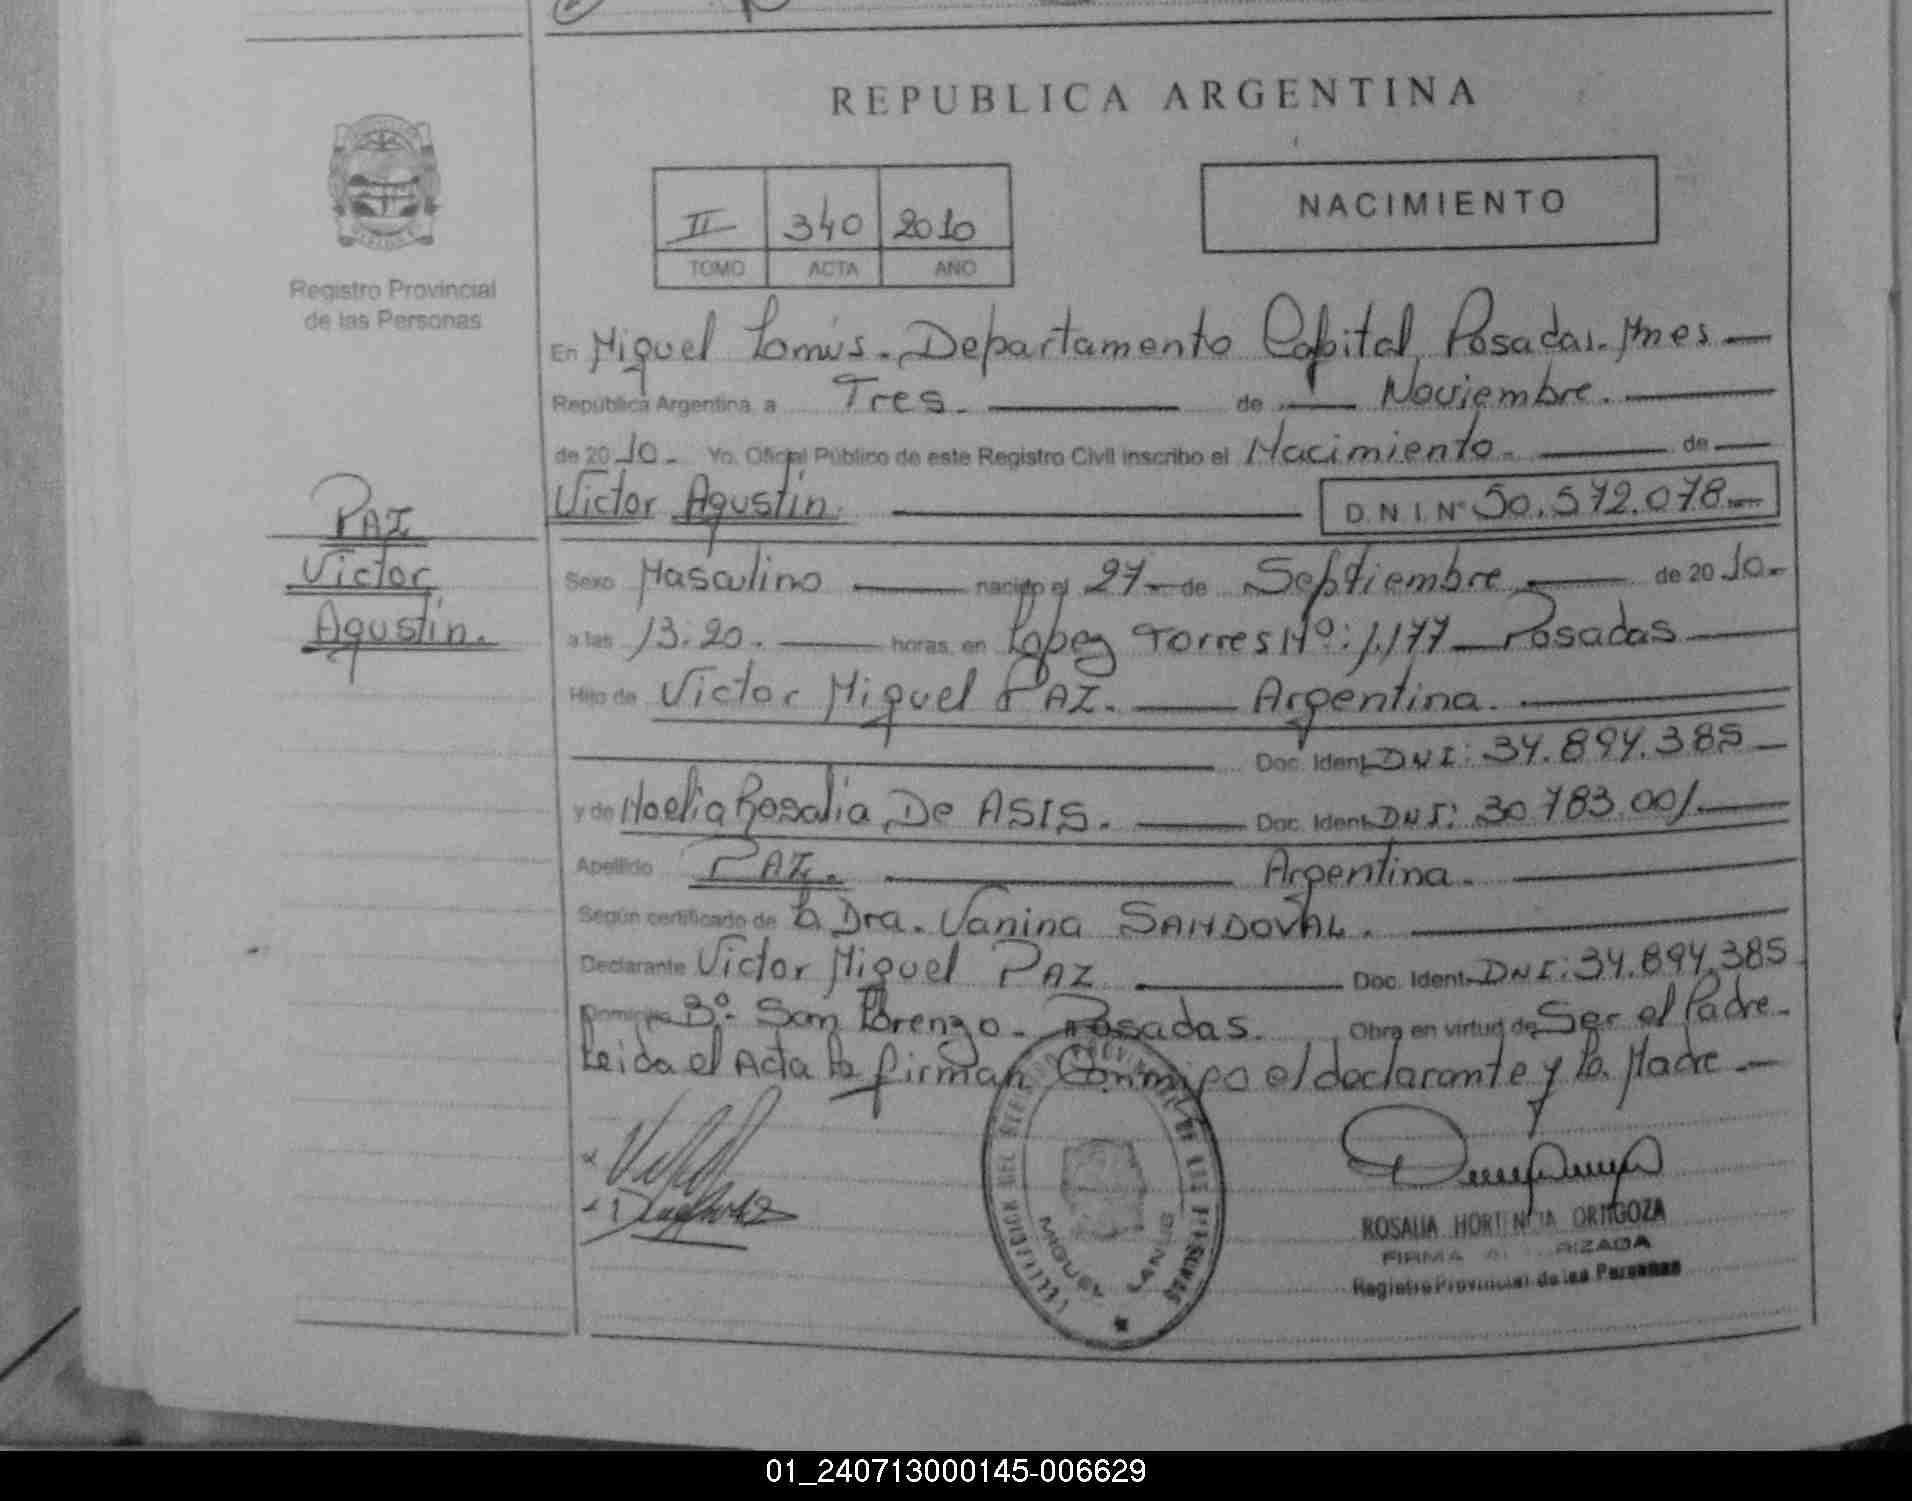 REPUBLICA ARGENTINA
II 340 2010
TOMO ACTA AÑO
NACIMIENTO
Registro Provincial
de las Personas
En Miguel Lanús. Departamento Capital, Posadas. Mnes
República Argentina, a Tres. de Noviembre.
de 2010. Yo, Oficial Público de este Registro Civil inscribo el Nacimiento. de
Victor Agustin. D.N.I. Nº 50.572.078
PAZ
Victor
Agustin.
Sexo Masculino nacido el 27 de Septiembre de 2010.
a las 13:20. horas, en Lopez Torres Nº: 1.177 Posadas
Hijo de Victor Miguel PAZ. Argentina.
Doc. Ident. DNI: 34.894.385
y de Noelia Rosalia De ASIS. Doc. Ident. DNI: 30 783.001
Apellido PAZ. Argentina.
Según certificado de la Dra. Vanina SANDOVAL.
Declarante Victor Miguel PAZ Doc. Ident. DNI: 34.894.385
Domicilio Bº. San Lorenzo. Posadas. Obra en virtud de Ser el Padre.
Leida el Acta la firman Conmigo el declarante y la Madre.
MIGUEL LANUS
ROSALIA HORTENCIA ORTIGOZA
FIRMA AUTORIZADA
Registro Provincial de las Personas
01_240713000145-006629